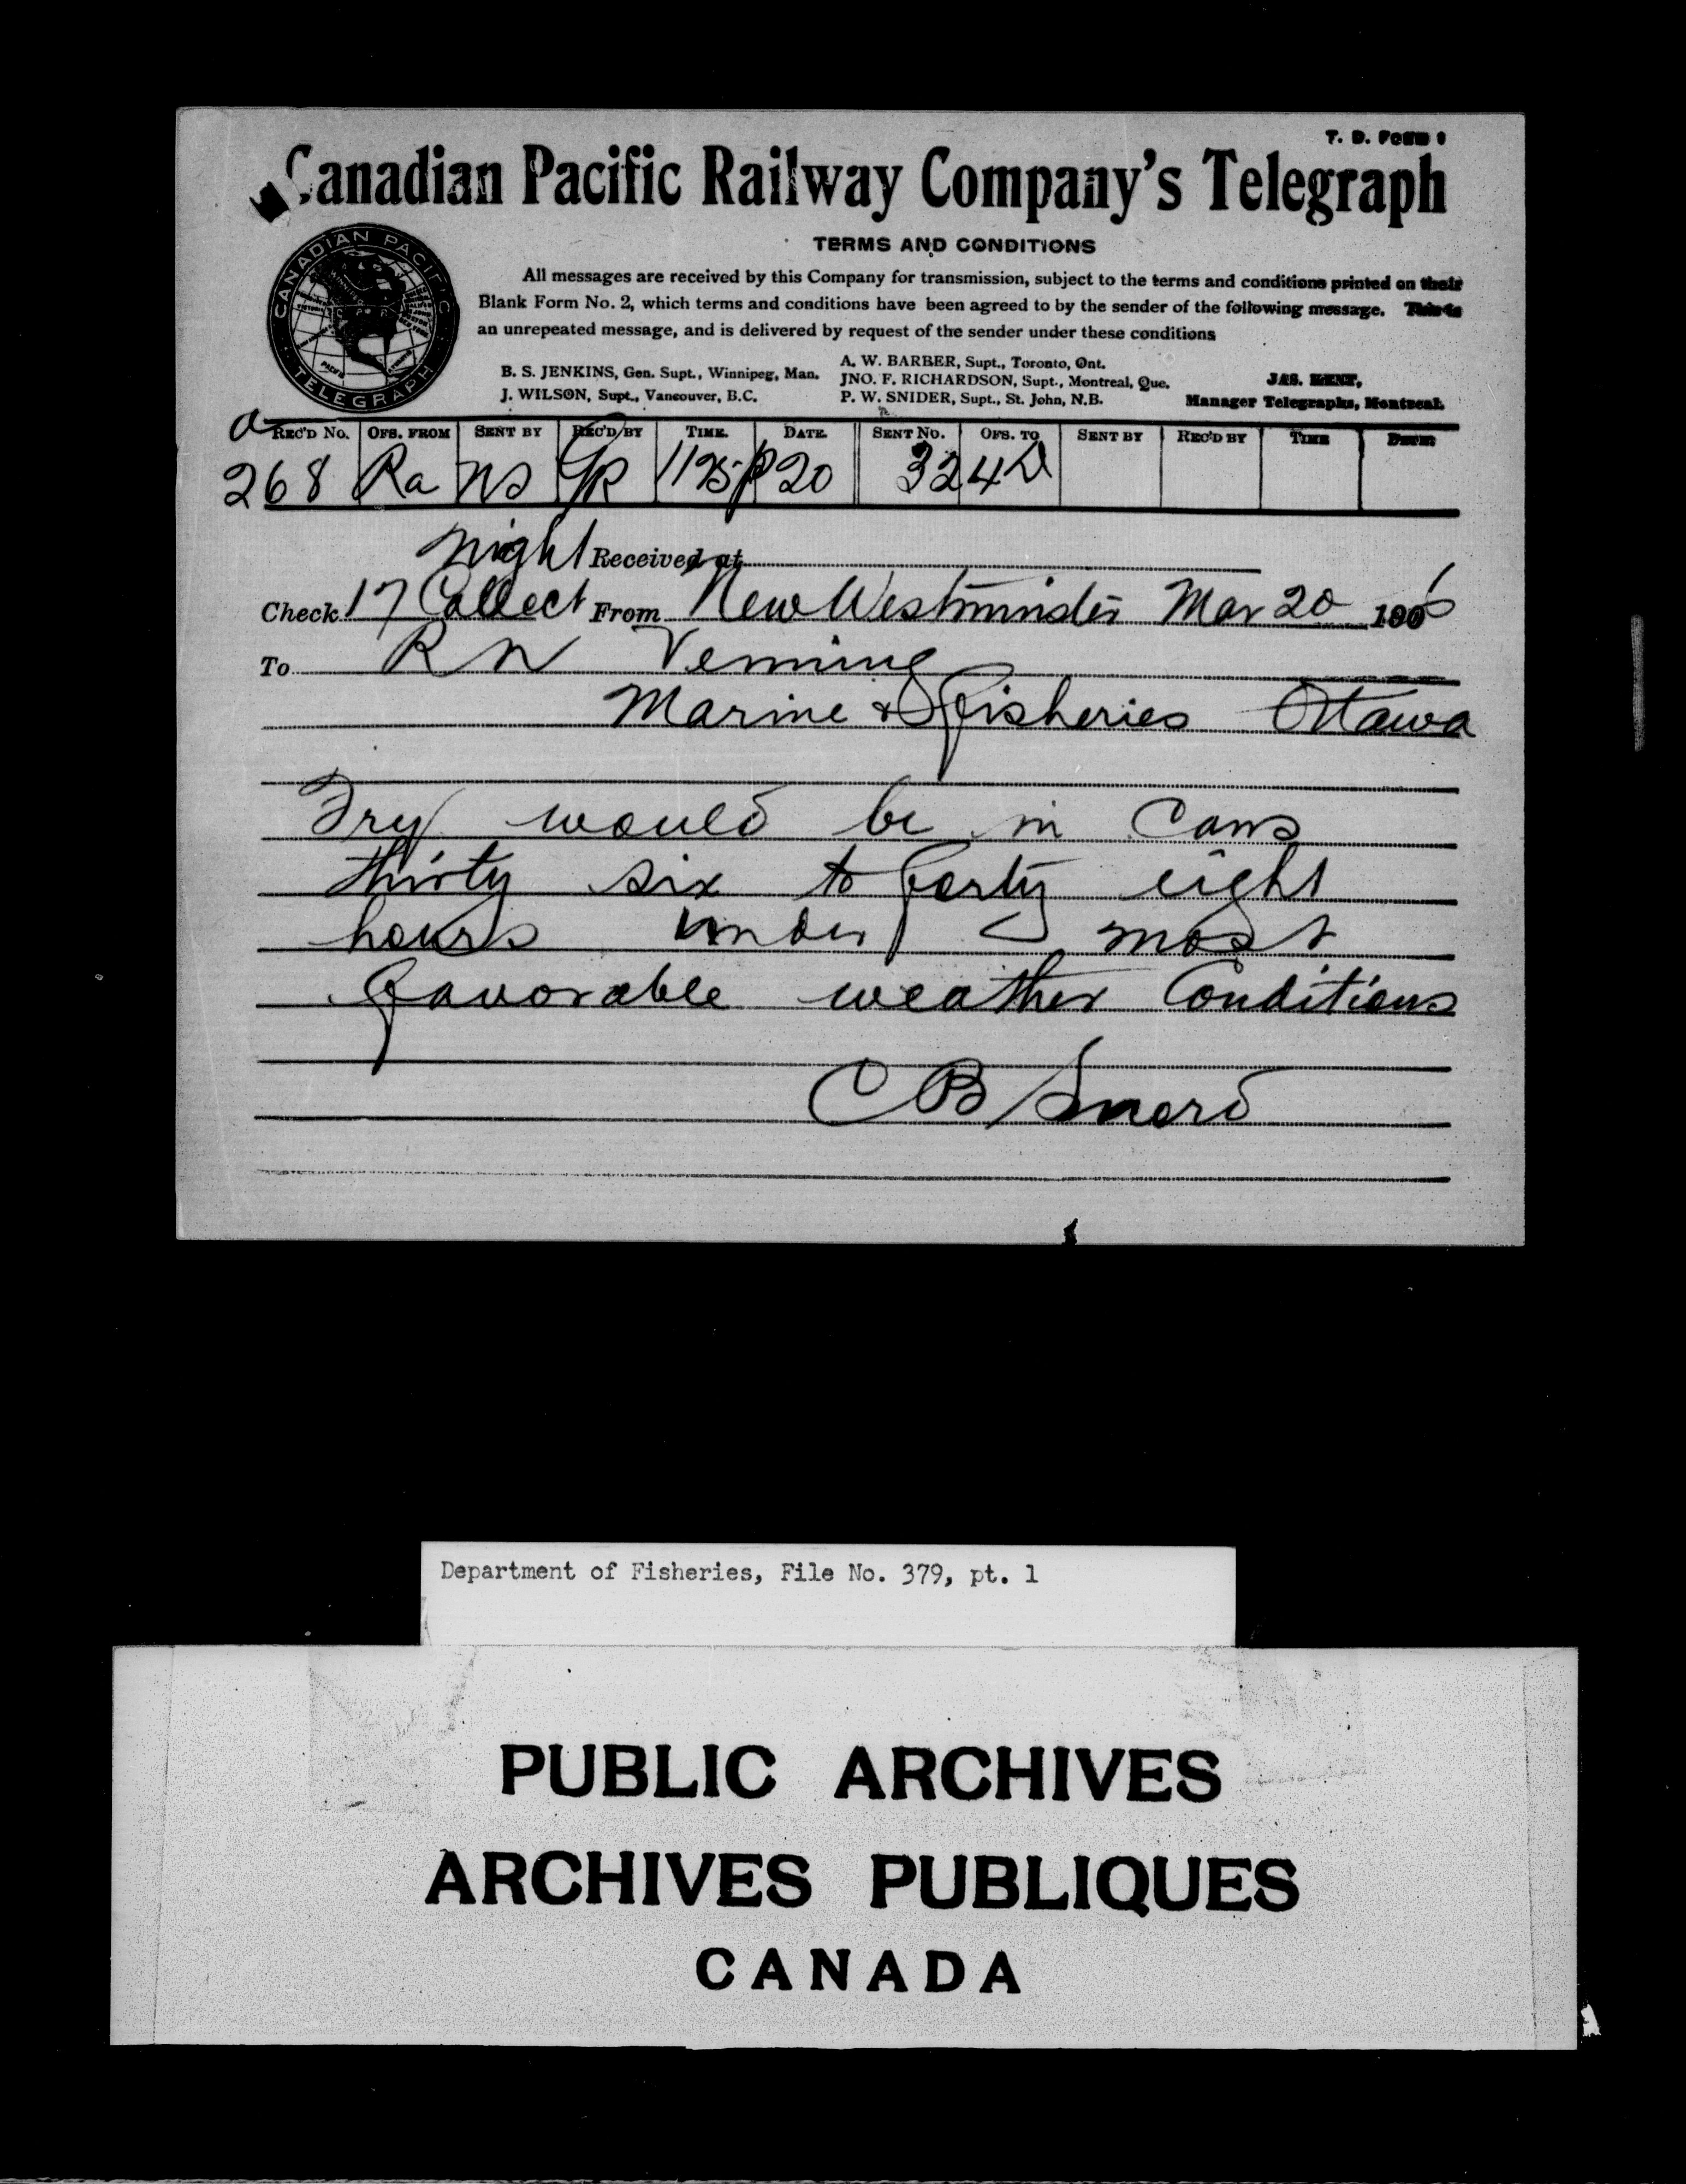 T. D. FORM 1
Canadian Pacific Railway Company's Telegraph
TERMS AND CONDITIONS
All messages are received by this Company for transmission, subject to the terms and conditions printed on their
Blank Form No. 2, which terms and conditions have been agreed to by the sender of the following message. This is
an unrepeated message, and is delivered by request of the sender under these conditions
CANADIAN PACIFIC
TELEGRAPH
B. S. JENKINS, Gen. Supt., Winnipeg, Man.
J. WILSON, Supt., Vancouver, B.C.
A. W. BARBER, Supt., Toronto, Ont.
JNO. F. RICHARDSON, Supt., Montreal, Que.
P. W. SNIDER, Supt., St. John, N.B.
JAS. KENT,
Manager Telegraphs, Montreal.
REC'D No. OFS. FROM SENT BY REC'D BY TIME. DATE. SENT No. OFS. TO SENT BY REC'D BY TIME DATE
268 Ra ns 1125p 20 324
Night Received at
Check 17 Collect From New Westminster Mar 20 1906
To R N Venning
Marine & Fisheries Ottawa
Fry would be in Cans
thirty six to forty eight
hours under most
favorable weather Conditions
C B Sword
Department of Fisheries, File No. 379, pt. 1
PUBLIC ARCHIVES
ARCHIVES PUBLIQUES
CANADA